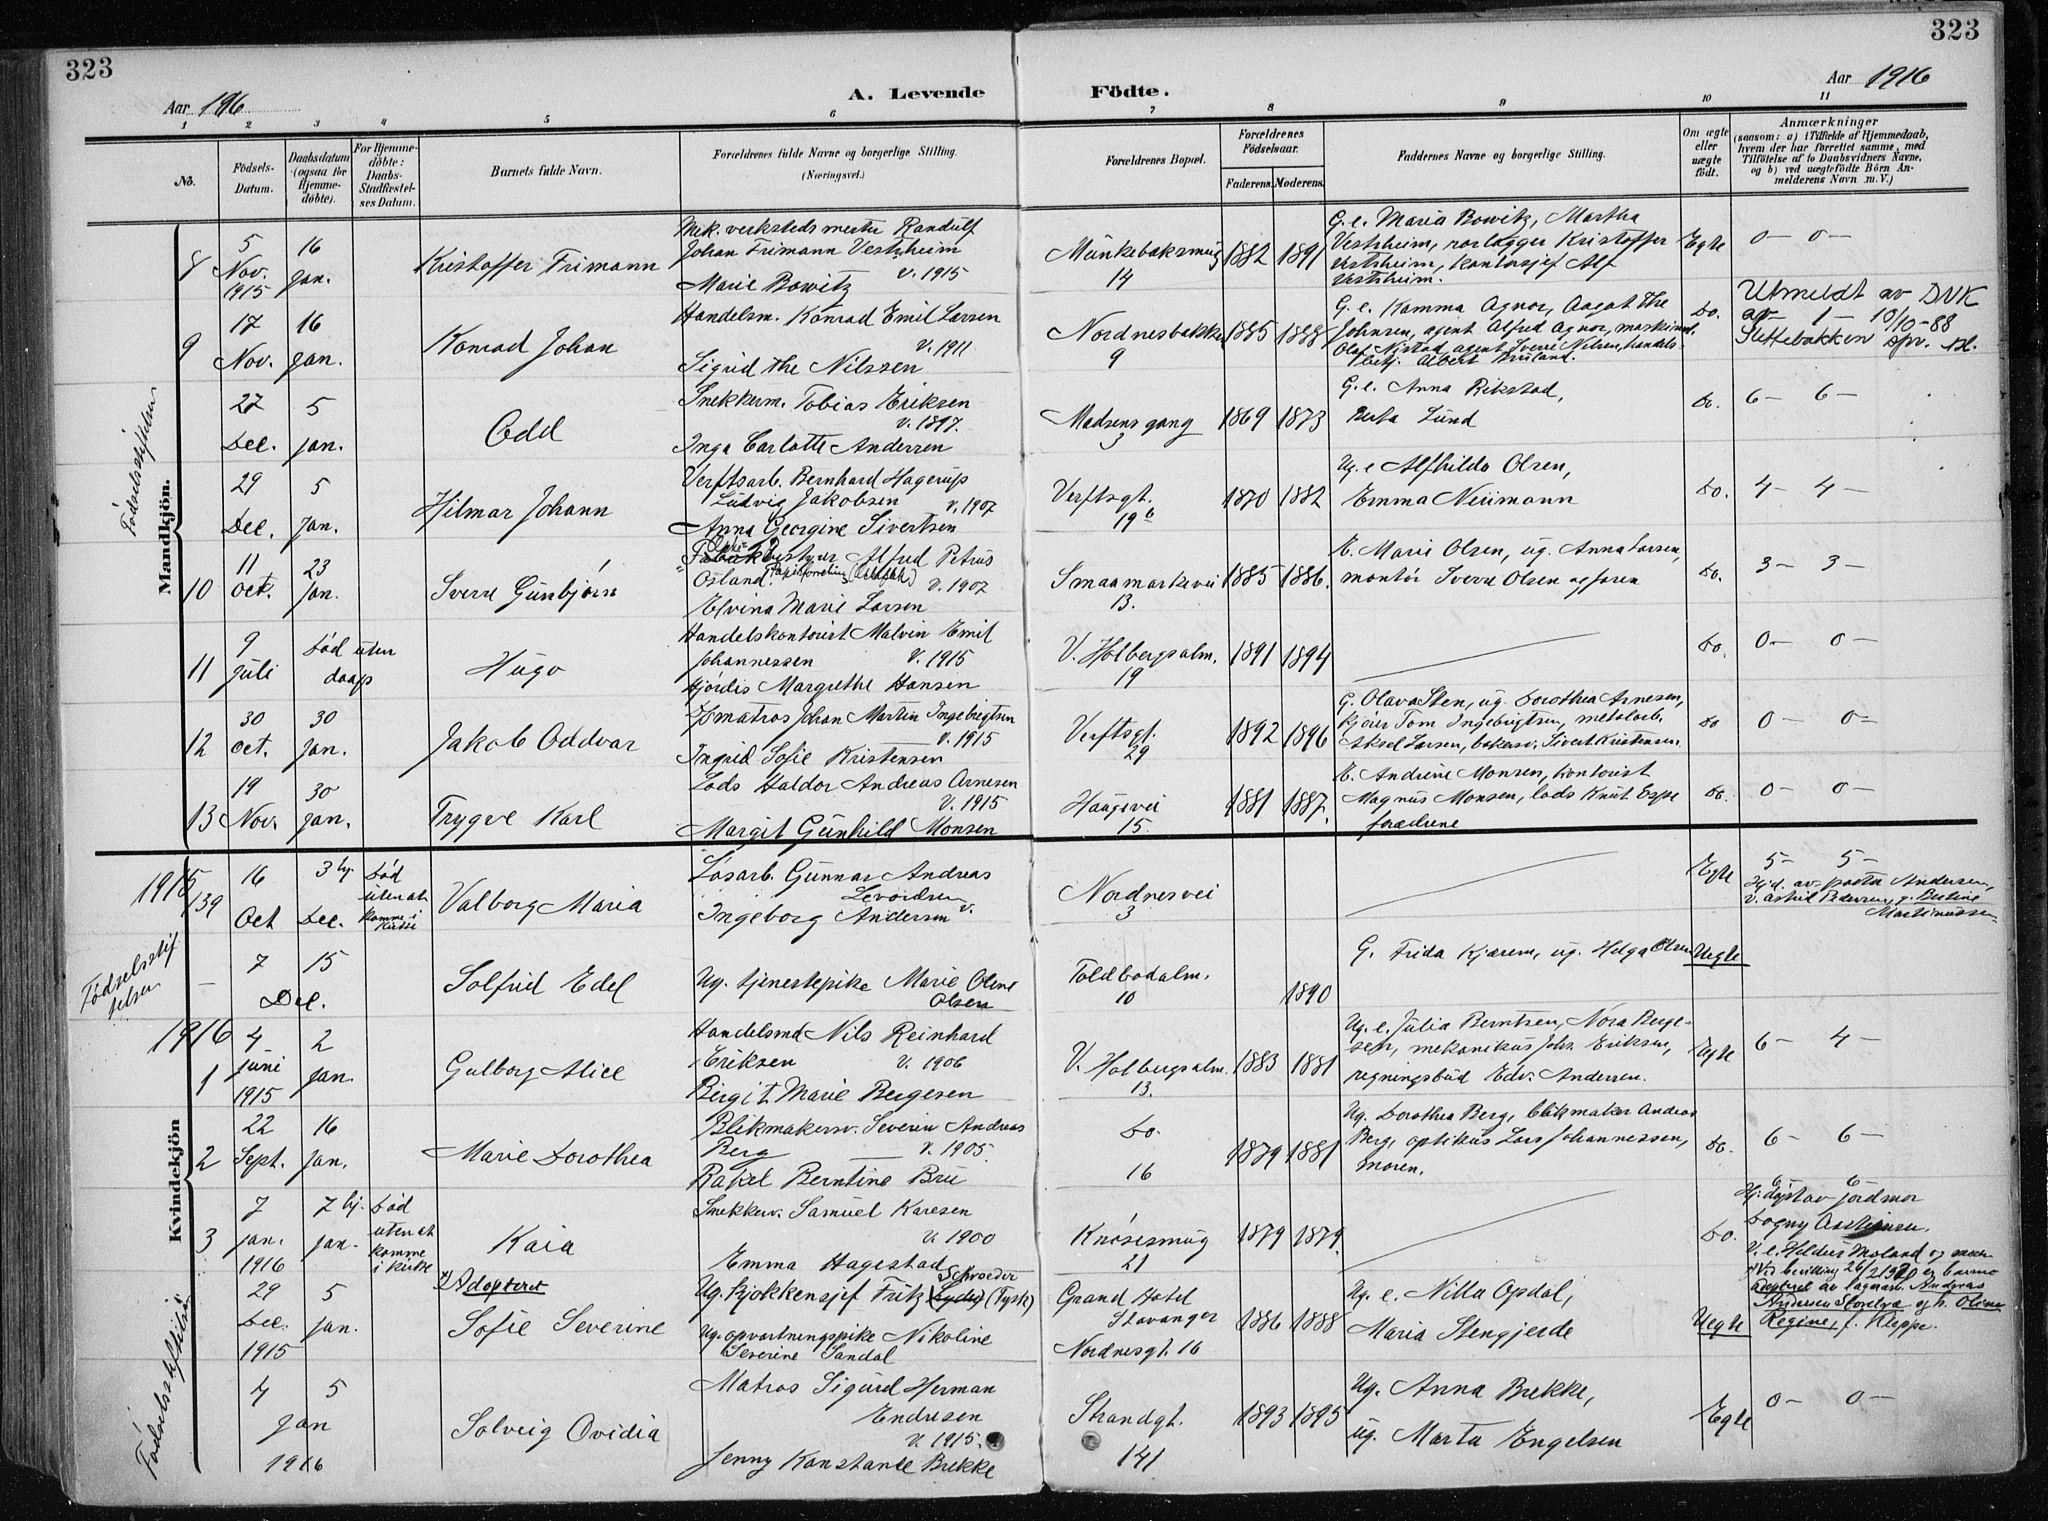 323
323
Aar 1916
A. Levende Födte.
Aar 1916
1 2 3 4 5 6 7 8 9 10 11
No.
Födsels-Datum.
Daabsdatum (ogsaa for Hjemmedöbte).
For Hjemmedöbte: Daabs-Stadfæstelses Datum.
Barnets fulde Navn.
Forældrenes fulde Navne og borgerlige Stilling.
(Næringsvei.)
Forældrenes Bopæl.
Forældrenes Födselsaar.
Faderens. Moderens.
Faddernes Navne og borgerlige Stilling.
Om ægte eller uægte födt.
Anmærkninger
(saasom: a) i Tilfælde af Hjemmedaab, hvem der har forrettet samme, med Tilföielse af to Daabsvidners Navne, og b) ved uægtefödte Börn Anmelderens Navn m. V.)
Mandkjön.
8
5 Nov. 1915
16 Jan.
Kristoffer Frimann
Mek. verkstedsmester Randulf
Johan Frimann Vestrheim
v. 1915
Marie Bowitz
Munkebaksmug
14
1882 1891
G. e. Maria Bowitz, Martha
Vestrheim, rørlægger Kristoffer
Vestrheim, kontorsjef Alf
Vestrheim.
Egte
0 – 0 –
9
17 Nov.
16 Jan.
Konrad Johan
Handelsm. Konrad Emil Larsen
v. 1911
Sigrid the Nilssen
Nordnesbakke
9
1885 1888
G. e. Kamma Agnor, Aagot the
Johnsen, agent Alfred Agnor, maskinist
Olaf Nistad, agent Sverre Nilsen, handels-
Albert
Do.
Utmeldt av DNK
1 – 10/10-88
Slettebakken spr.
27 Dec.
5 Jan.
Odd
Snekkerm. Tobias Eriksen
v. 1897.
Inga Carlotte Andersen
Madsens gang
3
1869 1873
G. e. Anna Rikstad,
Berta Lund
Do.
6 – 6 –
29 Dec.
5 Jan.
Hilmar Johann
Verftsarb. Bernhard Hagerup
Ludvig Jakobsen
v. 1907
Anna Georgine Sivertsen
Verftsgt.
19 b
1870 1882
Ug. e Alfhilda Olsen,
Emma Neumann
Do.
4 – 4 –
10
11 Oct.
23 Jan.
Sverre Gunbjørn
Alfred Petrus
Osland v. 1907
Elvina Marie Larsen
Smaamarkevei
13.
1885 1886.
E. Marie Olsen, ug. Anna Larsen,
montør Sverre Olsen og faren
Do.
3 – 3 –
11
9 Juli
død uten daap
Hugo
Handelskontorist Malvin Emil
Johannessen v. 1915
Hjørdis Margrethe Hansen
V. Holbergsalm.
19
1891 1894
Do.
0 – 0 –
12
30 Oct.
30 Jan.
Jakob Oddvar
matros Johan Martin Ingebrigtsen
v. 1915
Ingrid Sofie Kristensen
Verftsgt.
29
1892 1896
G. Olava Sten, ug. Dorothea Arnesen,
kjører Tom Ingebrigtsen, metalarb.
Aksel Larsen, bakersv. Sivert Kristensen
Do
0 – 0 –
13
19 Nov.
30 Jan.
Trygve Karl
Lods Haldor Andreas Arnesen
v. 1915
Margit Gunhild Monsen
Haugevei
15.
1881 1887.
E. Andrine Monsen, kontorist
Magnus Monsen, lods Knut Espe
forældrene
Do.
0 – 0 –
Kvindekjön
1915
139
16 Oct
3 hj. Dec.
død uten at komme i kirke
Valborg Maria
Løsarb. Gunnar Andreas
Levordsen
Ingeborg Andersen v.
Nordnesvei
3
Egte
5 – 5 –
Hjd. av Berta Andersen,
v. Astrid Pedersen, g. Bertine
Martinussen
–
7 15
Dec.
Solfrid Edel
Ug. tjenestepike Marie Oline
Olsen
Toldbodalm.
10
1890
G. Frida Kjærem, ug. Helga Olsen
Uegte
1916
1
4 Juni 1915
2 Jan.
Gulborg Alice
Handelsmd Nils Reinhard
Eriksen v. 1906
Birgit Marie Bergesen
V. Holbergsalm.
13.
1883 1881
Ug. e. Julia Berntsen, Nora Berge-
sen, mekanikus Johs. Eriksen,
regningsbud Edv. Andersen.
Egte
6 – 4 –
2
22 Sept.
16 Jan.
Marie Dorothea
Blikmakersv. Severin Andreas
Berg v. 1905.
Rakel Berntine Bru
Do.
16
1879 1881
Ug. Dorothea Berg, blikmaker Andreas
Berg, optikus Lars Johannessen,
moren.
Do.
6 – 6 –
3
7 Jan. 1916
7 hj. Jan.
død uten at komme i kirke
Kaia
Snekkerv. Samuel Karesen
v. 1900
Emma Hagestad
Knøsesmug
21
1879 1879.
Do.
6 – 6 –
Hj. døpt av jordmor
Dagny Aastensen.
V. e. Heldur Moland og
29 Dec. 1915
5 Jan.
Adopteret
Sofie Severine
Ug. kjøkkensjef Fritz Schroeder (Tysk)
Ug. opvartningspike Nikoline
Severine Sandal
Grand Hotel
Stavanger
Nordnesgt. 16
1886 1888
Ug. e. Nilla Opdal,
Maria Stengjerde
Uegte
Ved bevilling 26/2 1920 er barnet
adopteret av lagerarb. Andreas
Andersen Storetvæ og h. Oline
Regine, f. Kleppe.
4 5
Jan
1916
Solveig Ovidia
Matros Sigurd Herman
Endresen
v. 1915.
Jenny Konstanse Brekke
Strandgt.
141
1893 1895
Ug. Anna Brekke,
ug. Marta Engelsen
Egte
0 – 0 –